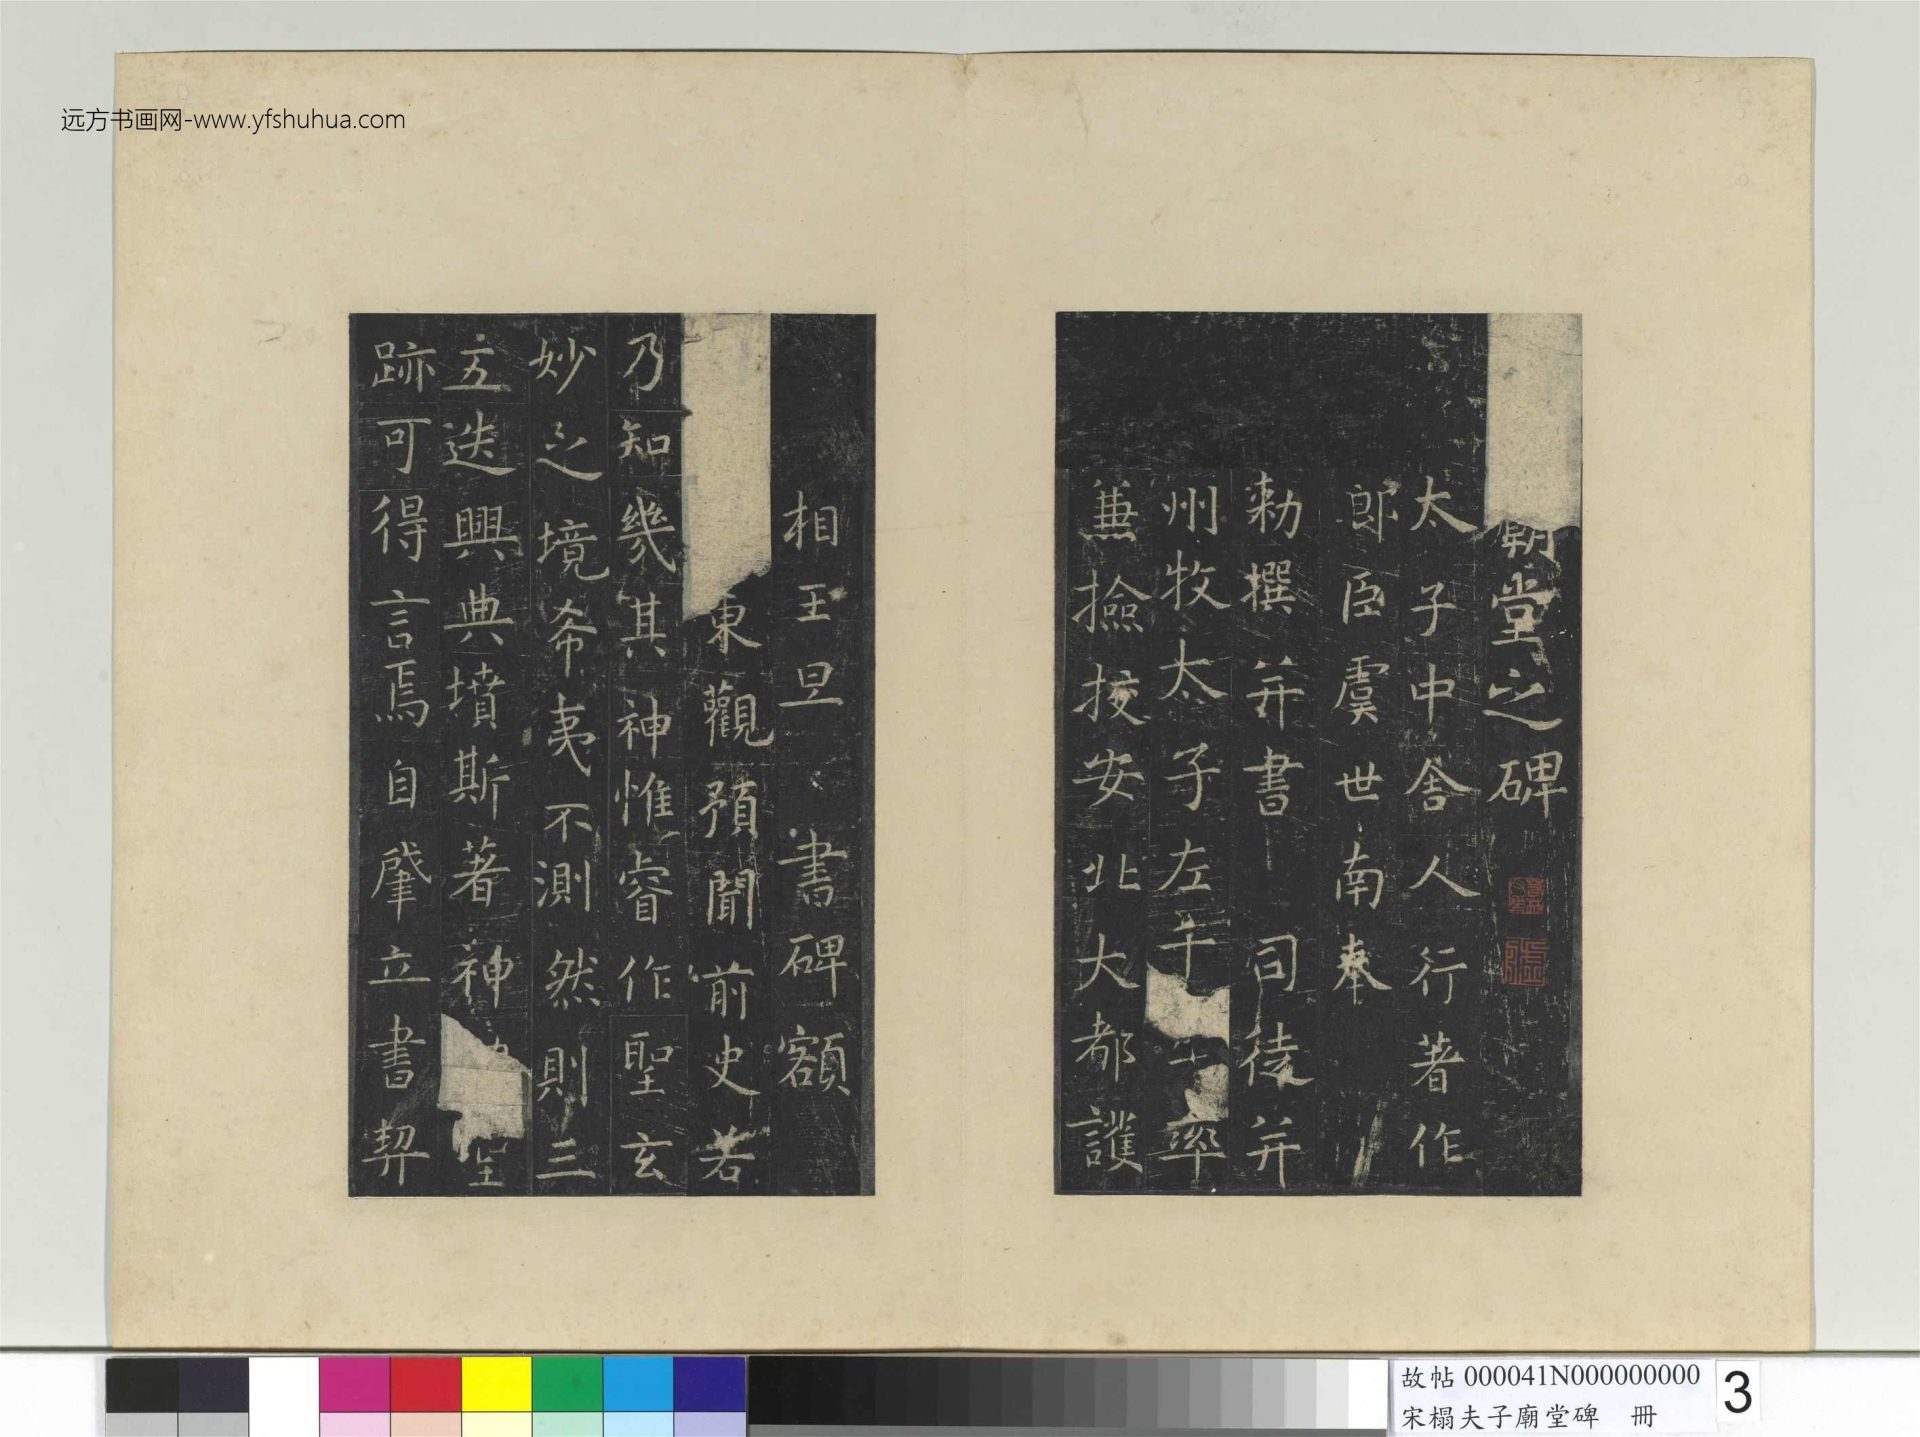 远方书画网-www.yfshuhua.com
廟堂之碑
太子中舎人行著作
郎臣虞世南奉
勅撰并書 司徒并
州牧太子左千率
兼撿挍安北大都護
相王旦書碑額
東觀預聞前史若
乃知幾其神惟睿作聖玄
妙之境希夷不測然則三
五迭興典墳斯著神
跡可得言焉自肇立書契
故帖 000041N000000000
宋榻夫子廟堂碑 冊
3